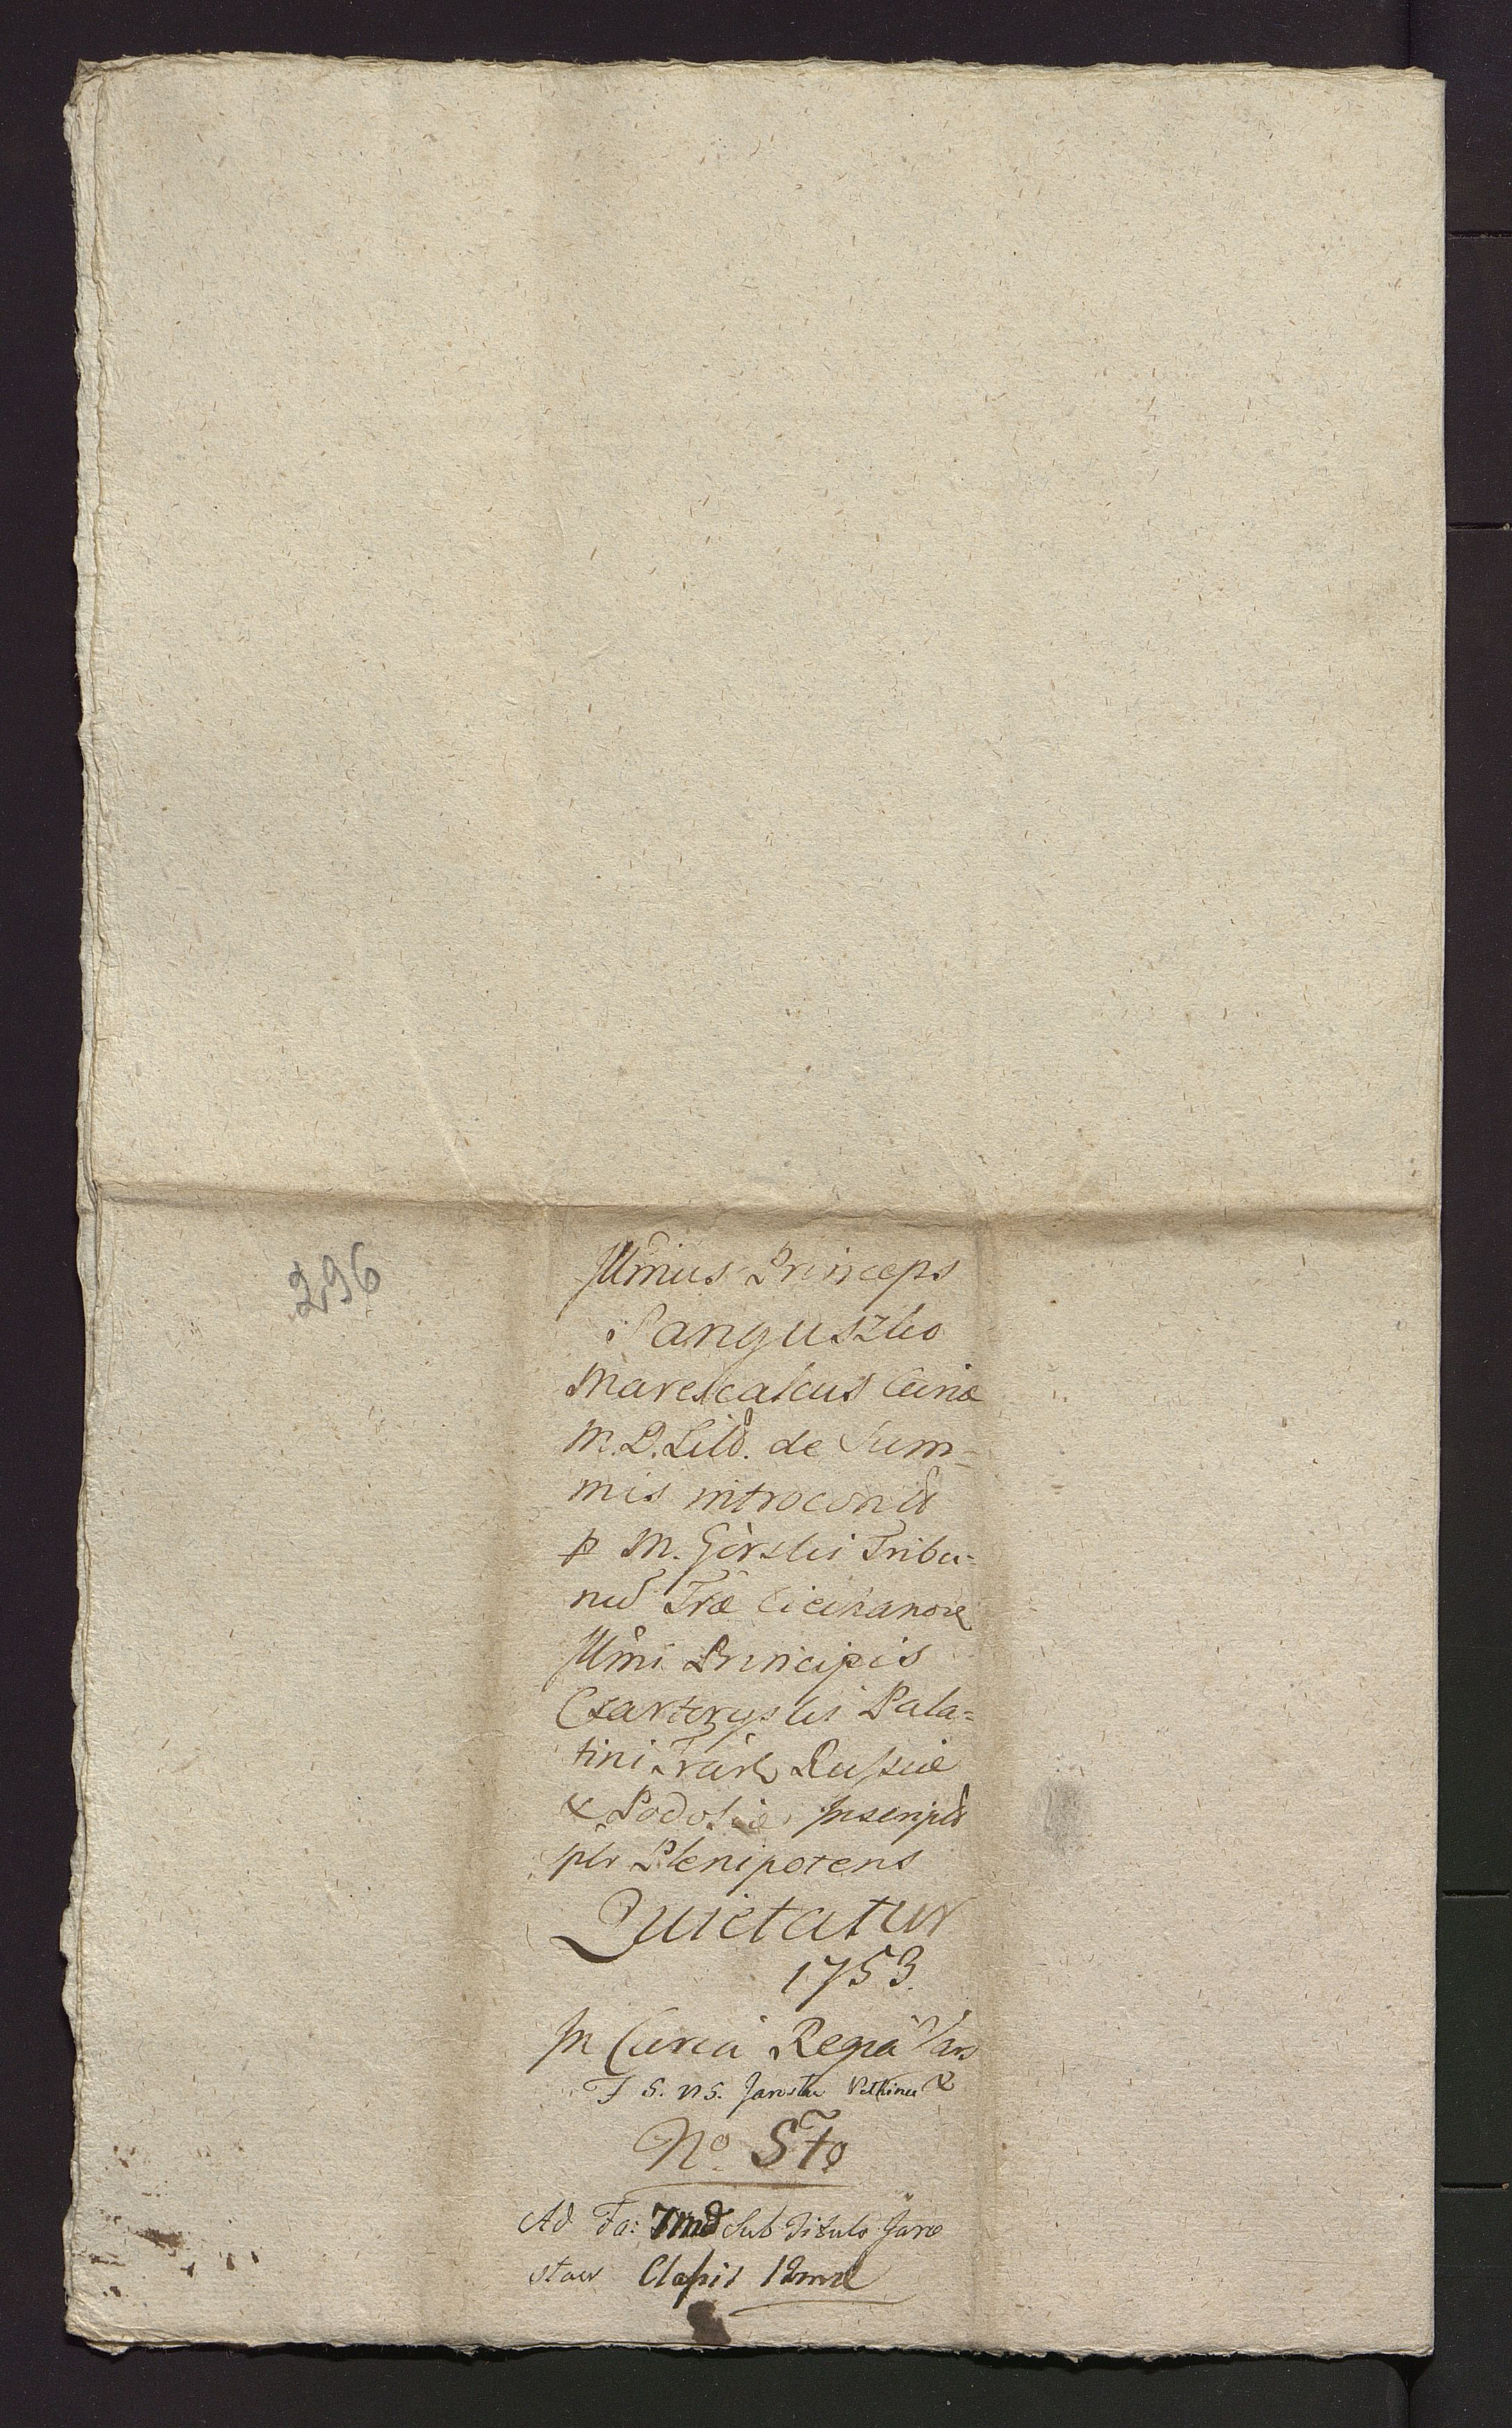 296
Illmus Princeps
Sanguszko
Marescalcus Curiæ
M. D. Litt. de Sum-
mis introcontt
p M. Górski Tribu-
nu Træ Ciechanoviē
Illmi Principis
Czartoryski Pala-
tini Trarū Russiæ
& Podoliæ Inscriptt
plr Plenipotens
Quietatur
1753.
In Curia Regia Vars
F S. N 5. Jarosław
No. 5to
Ad Fa: 7md Sub Titulo Jaro
staw Classis 12mæ